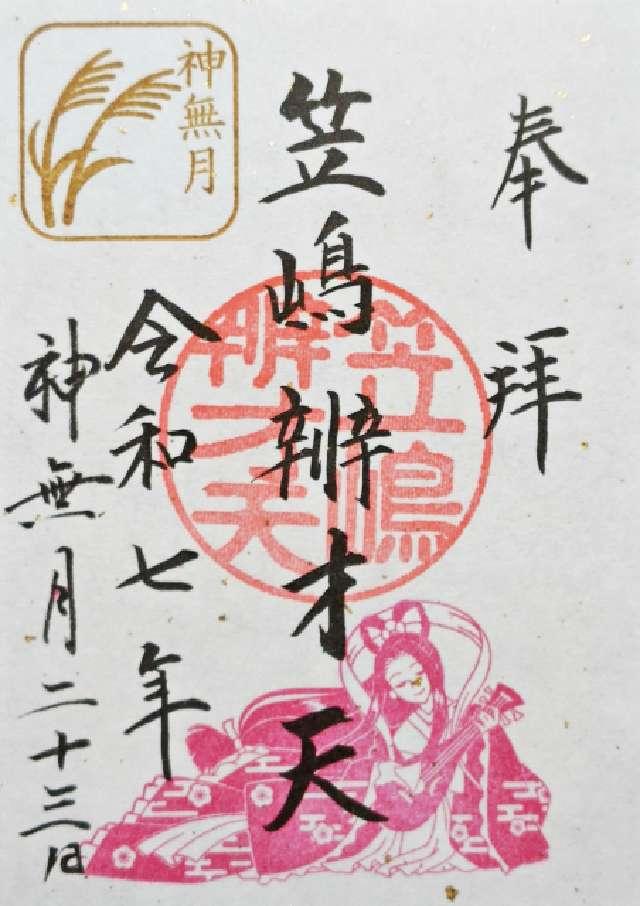 奉拝
笠嶋辨才天
笠嶋
辨才天
令和七年
神無月二十三日
神無月